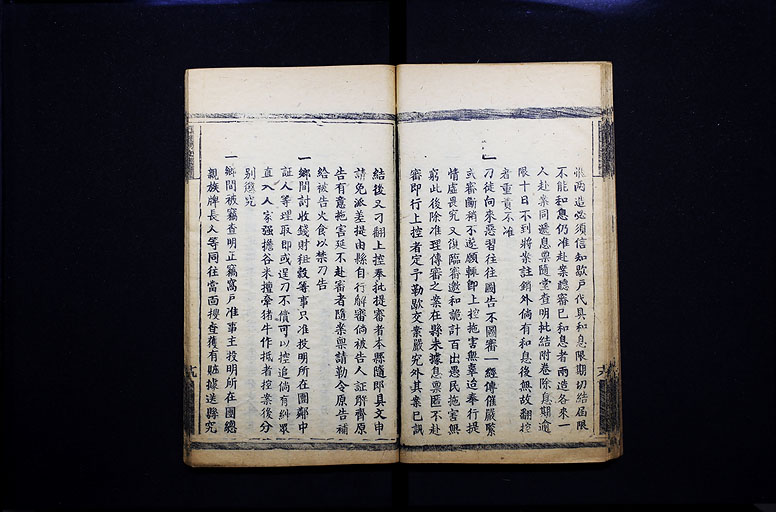 準兩造必須信知歇戶代具和息限期切結屆限
不能和息仍准赴案聽審已和息者兩造各來一
人赴案同遞息票隨堂查明批結附卷除息期逾
限十日不到將案註銷外倘有和息後無故翻控
者重責不准
一刁徒向來惡習往往圖告不圖審一經傳催嚴緊
或審斷稍不遂願輒即上控拖害無辜迨奉行提
情虛畏究又復臨審邀和詭計百出愚民拖害無
窮此後除准理傳審之案在縣未據息票匿不赴
審即行上控者定予勒歇交案嚴究外其案已訊
結後又刁翻上控奉批提審者本縣隨即具文申
請免派差提由縣自行解審倘被告人証齊原
告有意拖害延不赴審者隨案禀請勒令原告補
給被告火食以禁刁告
一鄉間討收錢財租穀等事只准投明所在團鄰中
証人等理取即或逞刁不償可以控追倘有糾眾
直入人家强擔谷米擅牽猪牛作抵者控案後分
別懲究
一鄉間被竊查明正竊窩戶准事主投明所在團總
親族牌長人等同往當面搜查獲有賍據送縣究